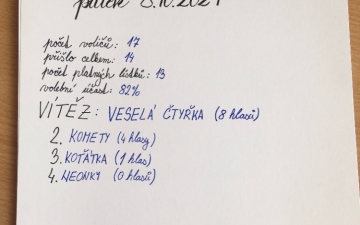 pátek 8.10.2021
počet voličů: 17
přišlo celkem: 14
počet platných lístků: 13
volební účast: 82%
VÍTĚZ: VESELÁ ČTYŘKA (8 hlasů)
2. KOMETY (4 hlasy)
3. KOŤÁTKA (1 hlas)
4. NEONKY (0 hlasů)